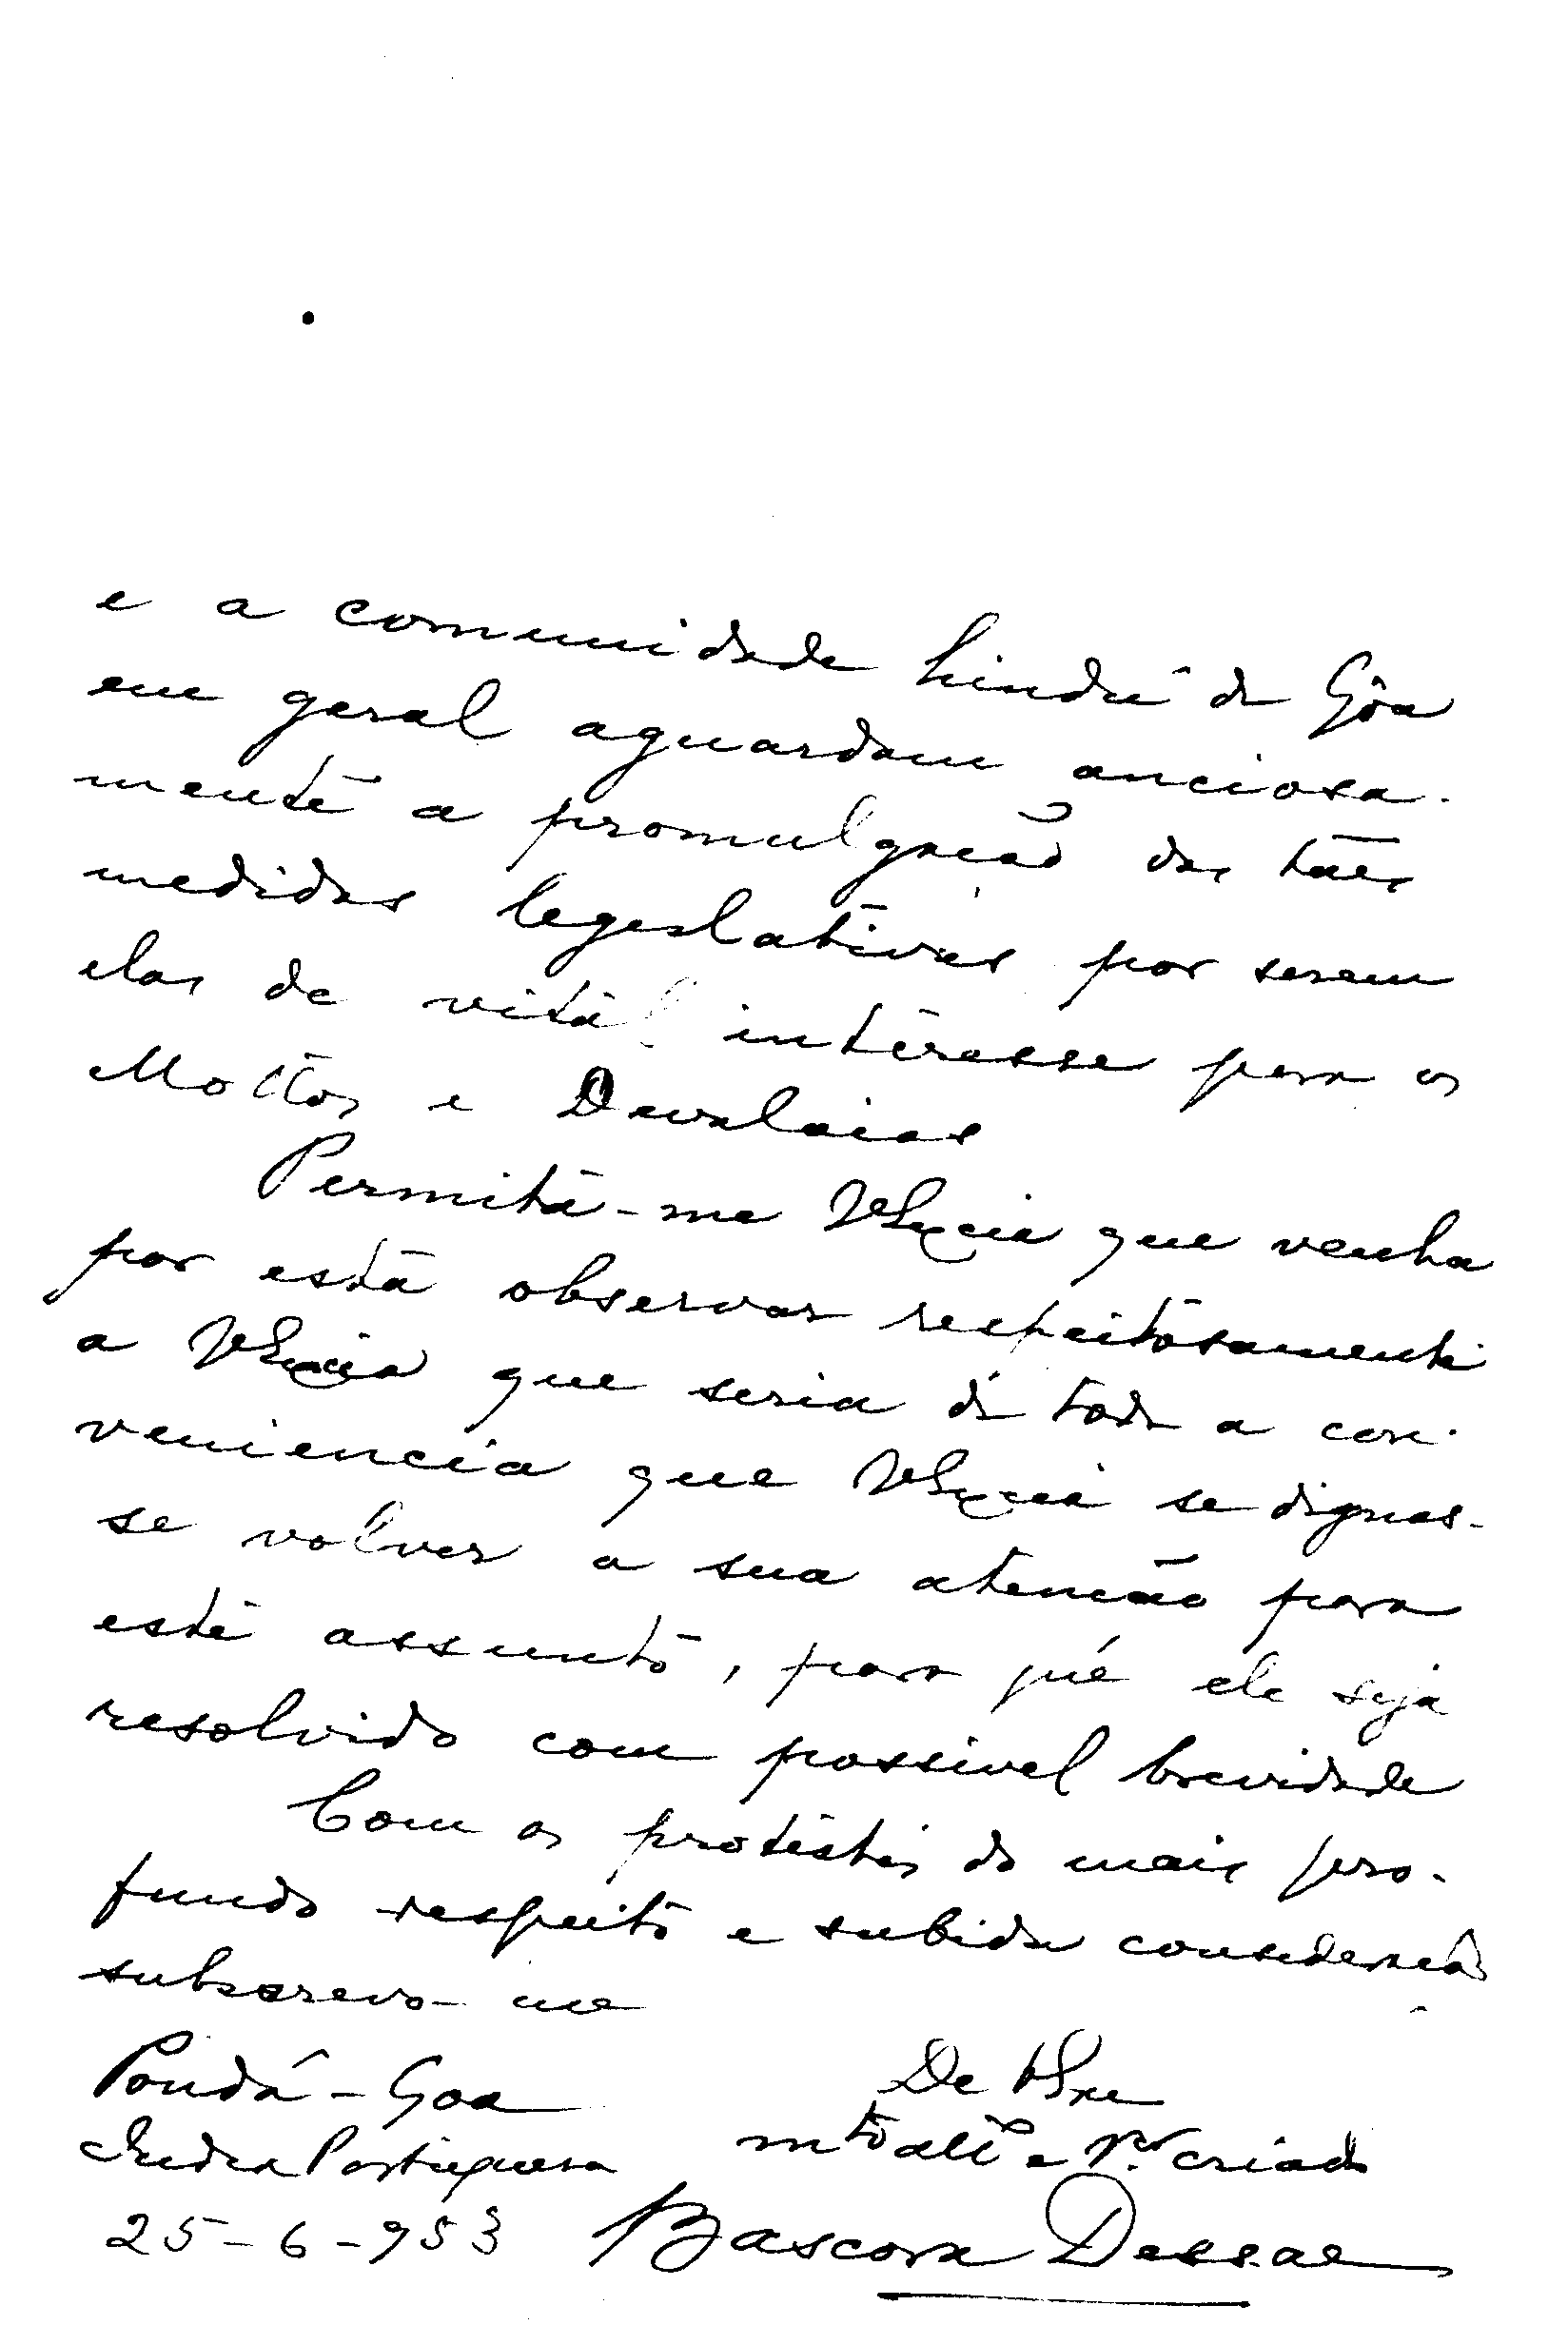 e a comunidade hindú de Gôa
em geral aguardam anciosa-
mente a promulgação das tais
medidas legislativas por serem
elas de vital interesse para os
Mottos e Devalaias
Permita-me VExcia que venha
por esta observar respeitosamente
a VExcia que seria de toda a con-
veniencia que VExcia se dignas-
se volver a sua atenção para
este assunto, para que ele seja
resolvido com possivel brevidade
Com os protestos do mais pro-
fundo respeito e subida consideração
subscrevo-me
Pondá - Goa
India Portuguesa
25-6-953
De VExa
mto atto e Vor criado
Bascora Dessae